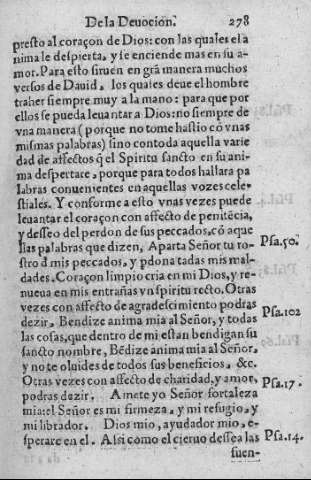 De la Deuocion. 278
presto al coraçon de Dios: con las quales el a
nima le despierta, y se enciende mas en su a-
mor. Para esto siruen en grā manera muchos
versos de Dauid, los quales deue el hombre
traher siempre muy a la mano: para que por
ellos se pueda leuantar a Dios: no siempre de
vna manera (porque no tome hastio cō vnas
mismas palabras) sino con toda aquella varie
dad de affectos q̄ el Spiritu sancto en su ani-
ma despertare, porque para todos hallara pa
labras conuenientes en aquellas vozes cele-
stiales. Y conforme a esto vnas vezes puede
leuantar el coraçon con affecto de penitēcia,
y desseo del perdon de sus peccados, cō aque
llas palabras que dizen, Aparta Señor tu ro- Psa. 50.
stro d̄ mis peccados, y pdona todas mis mal-
dades. Coraçon limpio cria en mi Dios, y re-
nueua en mis entrañas vn spiritu recto. Otras
vezes con affecto de agradescimiento podras
dezir, Bendize anima mia al Señor, y todas Psa. 102
las cosas, que dentro de mi estan bendigan su
sancto nombre, Bēdize anima mia al Señor,
y no te oluides de todos sus beneficios, &c.
Otras vezes con affecto de charidad, y amor, Psa. 17.
podras dezir. Amete yo Señor fortaleza
mia: el Señor es mi firmeza, y mi refugio, y
mi librador. Dios mio, ayudador mio, e-
sperare en el. Assi como el cieruo dessea las Psa. 14.
fuen-